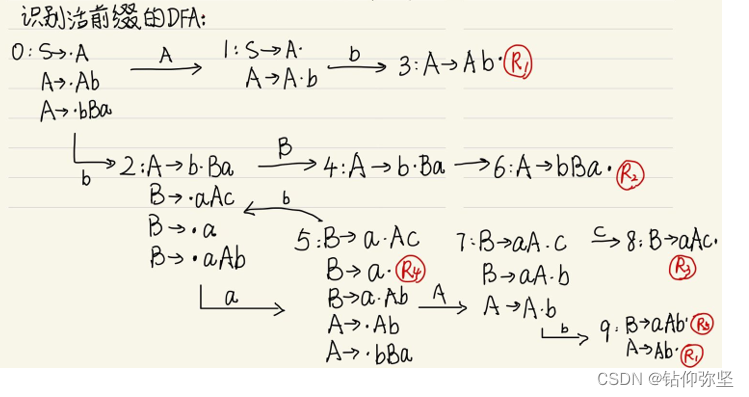 识别活前缀的DFA:
0: S→·A
A→·Ab
A→·bBa
A
1: S→A·
A→A·b
b
3: A→Ab· R1
b
2: A→b·Ba
B→·aAc
B→·a
B→·aAb
B
4: A→b·Ba
6: A→bBa· R2
b
a
5: B→a·Ac
B→a· R4
B→a·Ab
A→·Ab
A→·bBa
A
7: B→aA·c
B→aA·b
A→A·b
c
8: B→aAc·
R3
b
9: B→aAb·
A→Ab· R1
CSDN @钻仰弥坚